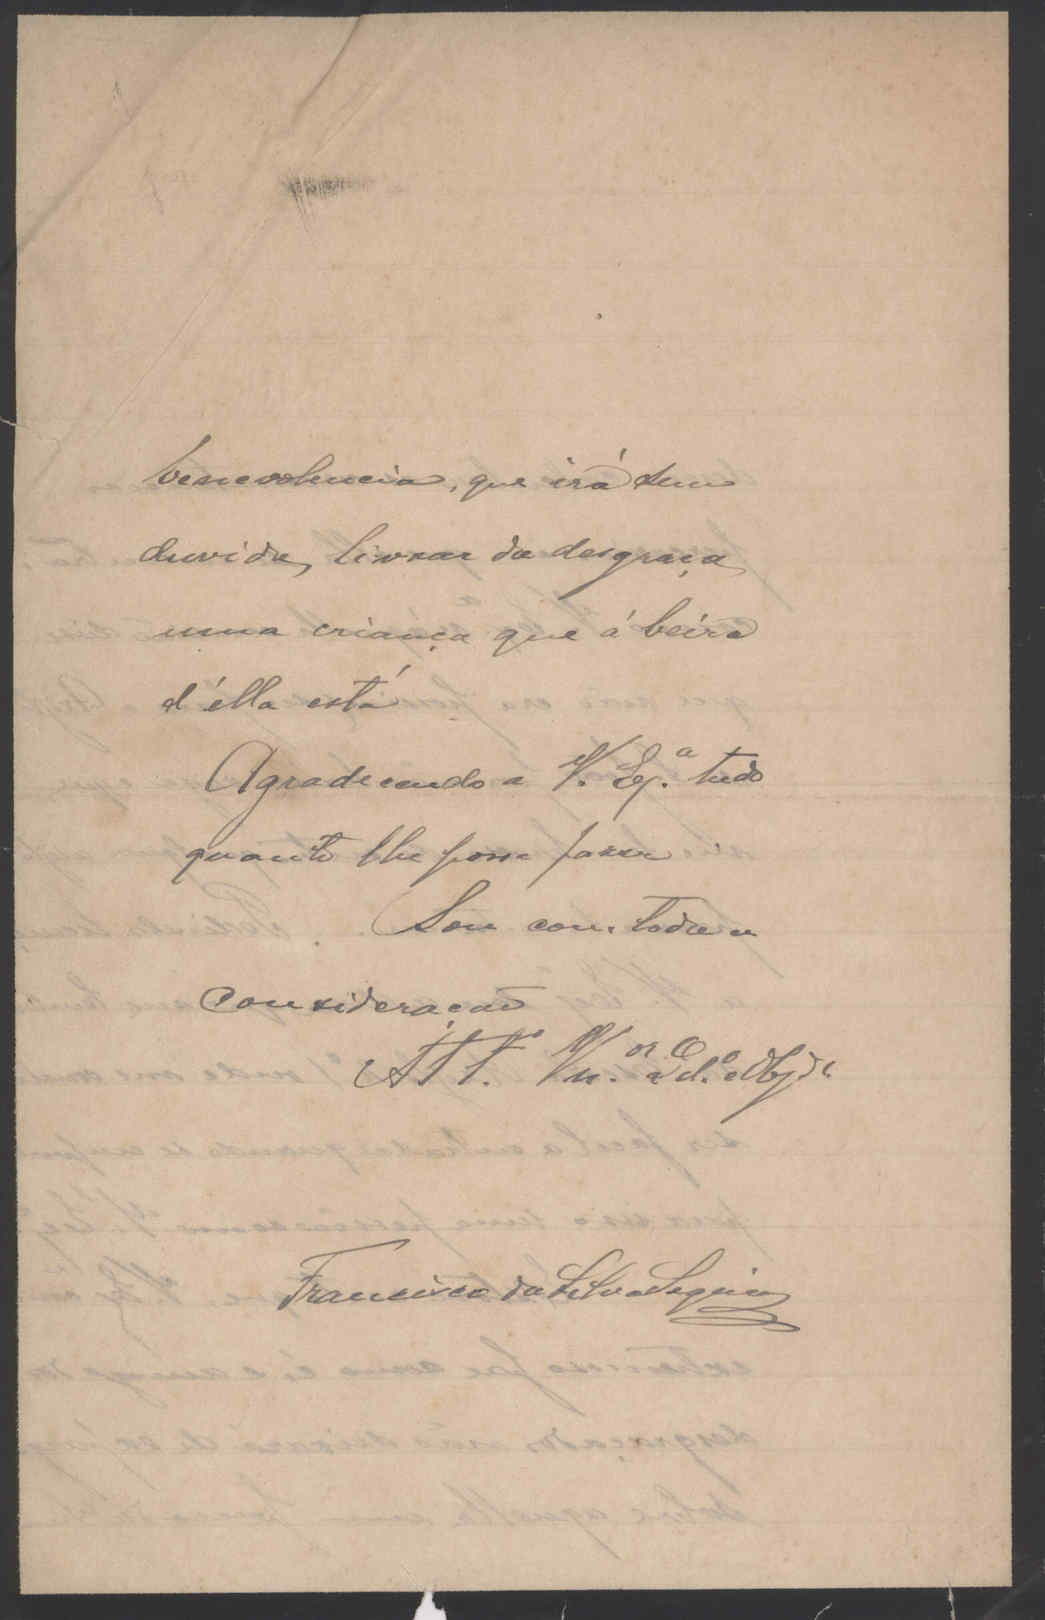 benevolencia, que irá sem
duvida, livrar da desgraça
uma criança que á beira
d'élla está
Agradecendo a V. Ex.ª tudo
quanto lhe possa fazer
Sou com toda a
consideração
Att.º Vn.or Cr.do Obg.do
Francisco da Silva Sequeira